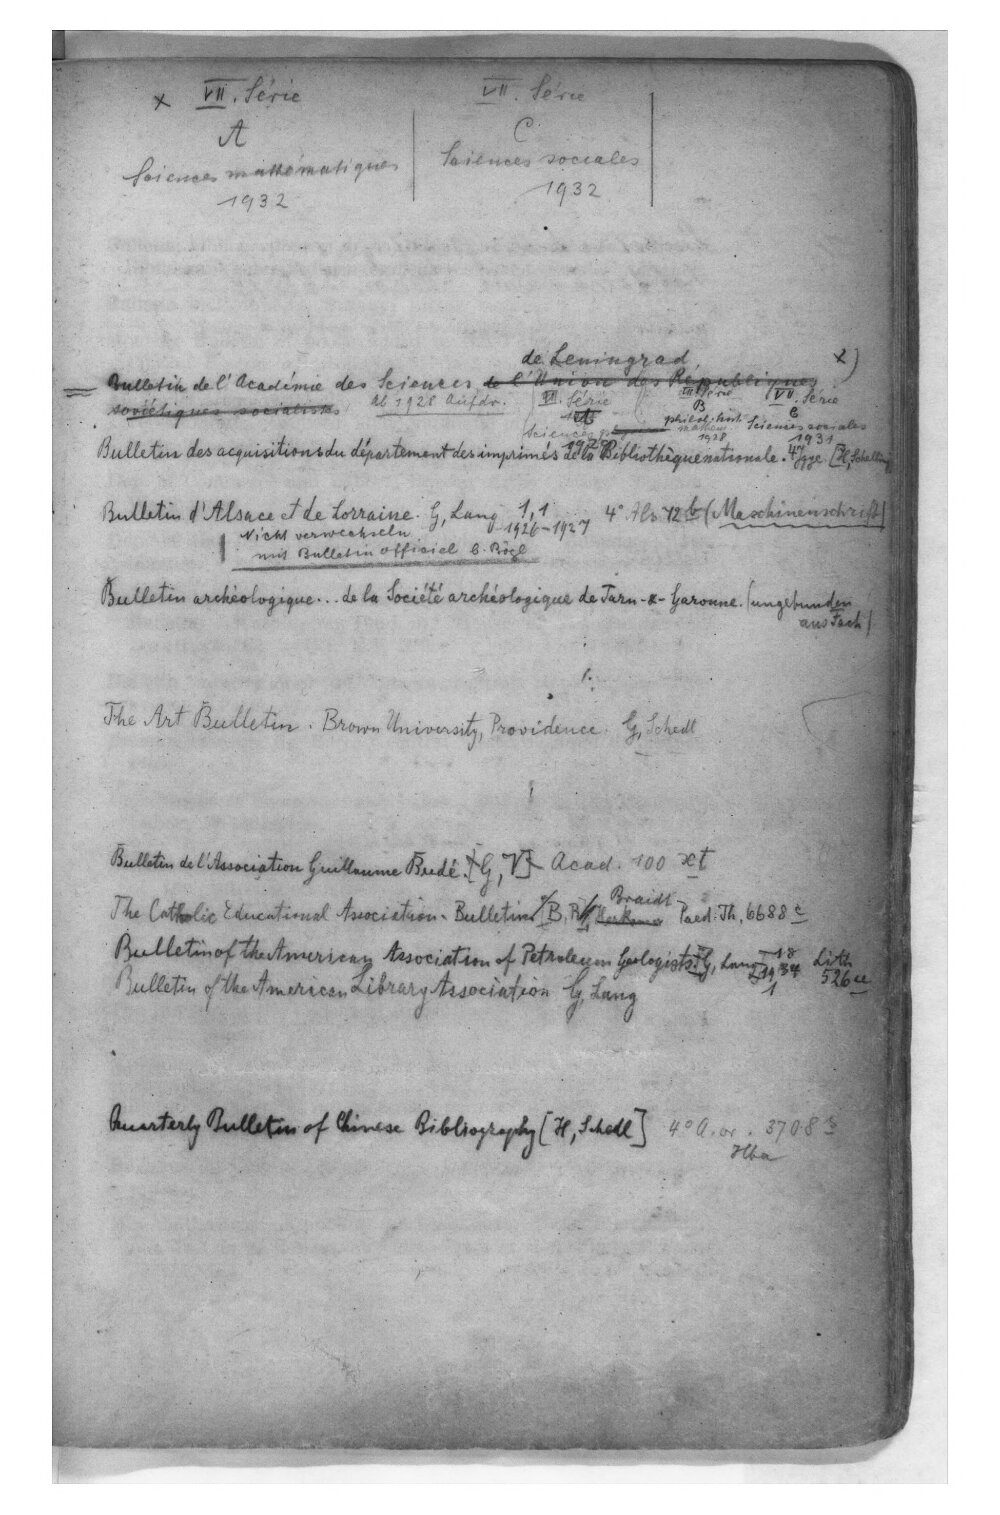 x VII. Série
A
Sciences mathématiques
1932
VII. Série
C
Sciences sociales
1932
de Leningrad x)
Bulletin de l'Académie des Sciences de l'Union des Républiques
soviétiques socialistes Ab 1928 Aufdr. VII. Série A Sciences 1928
VII Série B philol. hist. 1928
VII. Série C Sciences sociales 1931
Bulletin des acquisitions du département des imprimés de la Bibliothèque nationale. [H, Schelling
Bulletin d'Alsace et de Lorraine. G, Lang 1,1 1926-1927 4° Als 72 b (Maschinenschrift)
Nicht verwechseln
mit Bulletin officiel b. Bögl
Bulletin archéologique... de la Société archéologique de Tarn-&-Garonne. (ungebunden
aus Fach)
The Art Bulletin. Brown University, Providence. G, Schedl
Bulletin de l'Association Guillaume Budé. [G, V] Acad. 100 xt
The Catholic Educational Association. Bulletin [B, R Braidt Paed. Th. 6688 c
Bulletin of the American Association of Petroleum Geologists. G, Lang 18 1934 1 Lith 526 u
Bulletin of the American Library Association G, Lang
Quarterly Bulletin of Chinese Bibliography [H, Schedl] 4° A. or. 3708